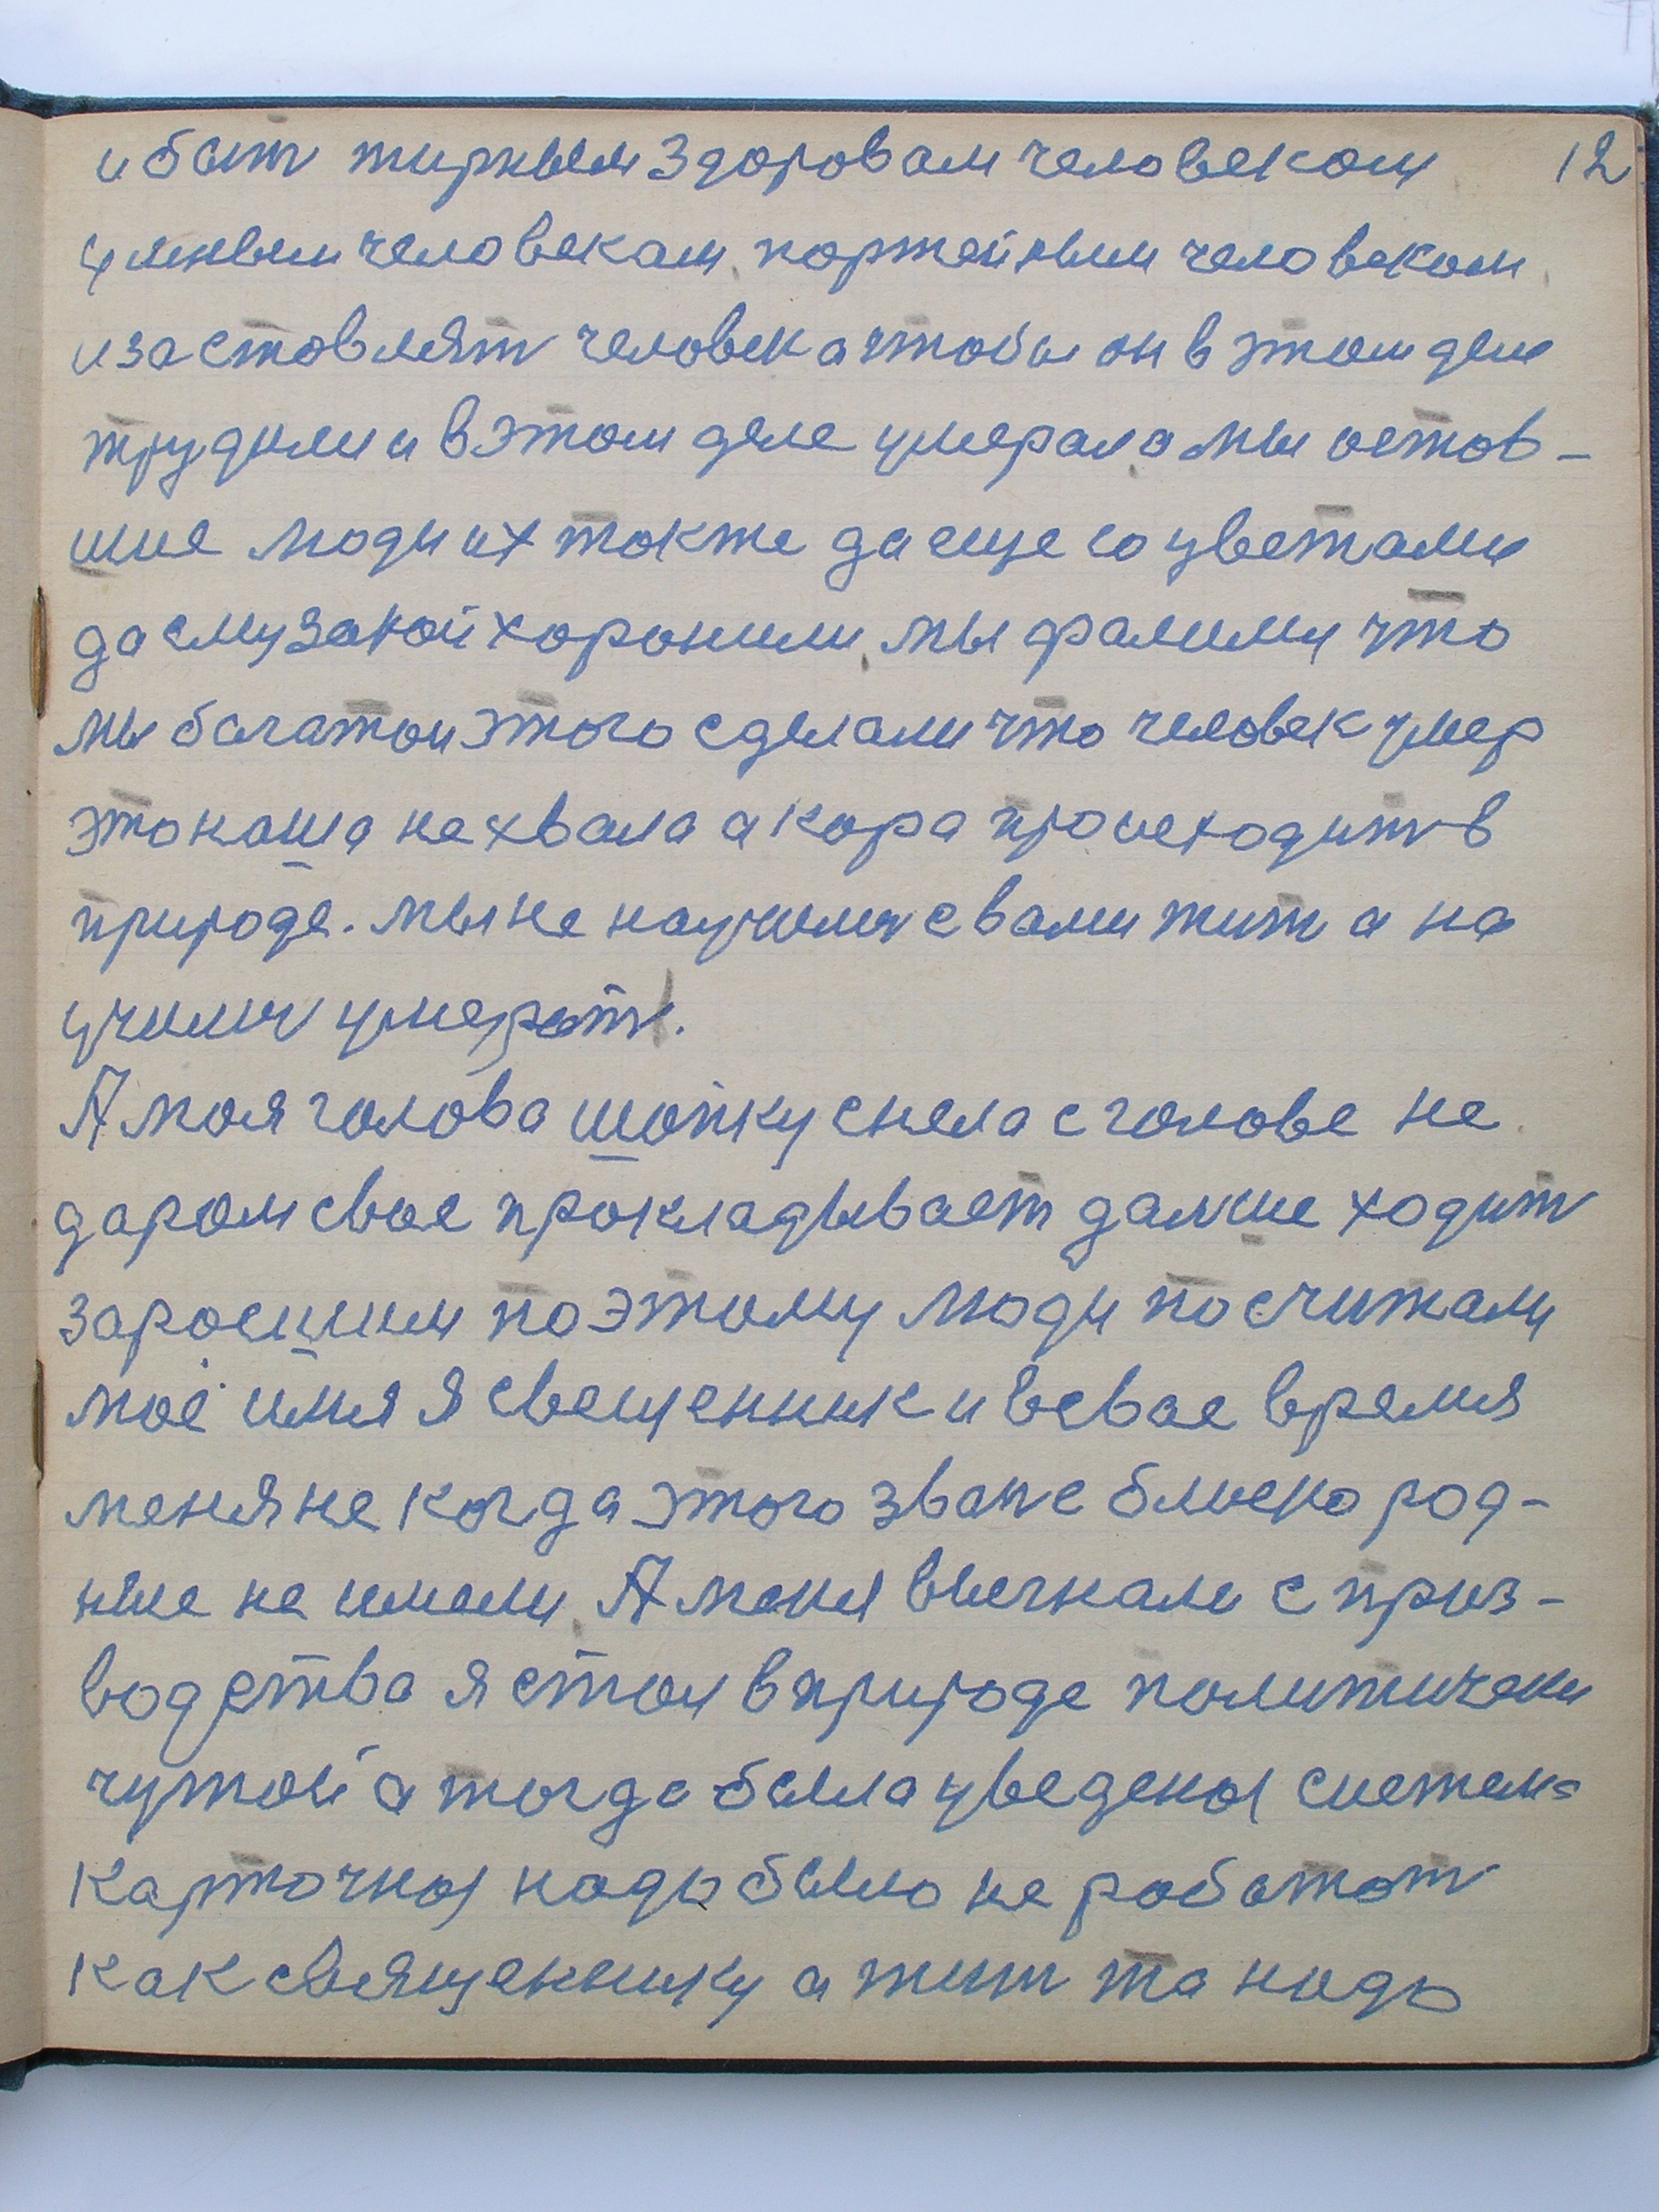 и быт жирным здоровам человеком 12
умным человекам, партейным человеком,
и заставлят человека чтобы он в этом деле
трудили и в этом деле умерал а мы остов-
шие люди их также да еще со цветами
да с музакой хоронили, мы фалими что
мы багатои этого сделали что человек умер
это наша не хвала а кара проиеходит в
природе. мы не научилися вами жит а на
училис умерат.
А моя голова шапку снела с голове не
даром свое прокладывает далше ходит
заросшим поэтому люди посчитали
моё имя я свещенник и всвае время
меня не когда этого звание блиско род-
ные не имели, А меня выгнали с приз-
водства я стал в природе политически
чутой а тогда была уведена система
карточная надо было не работат
как священнику а жит та надо